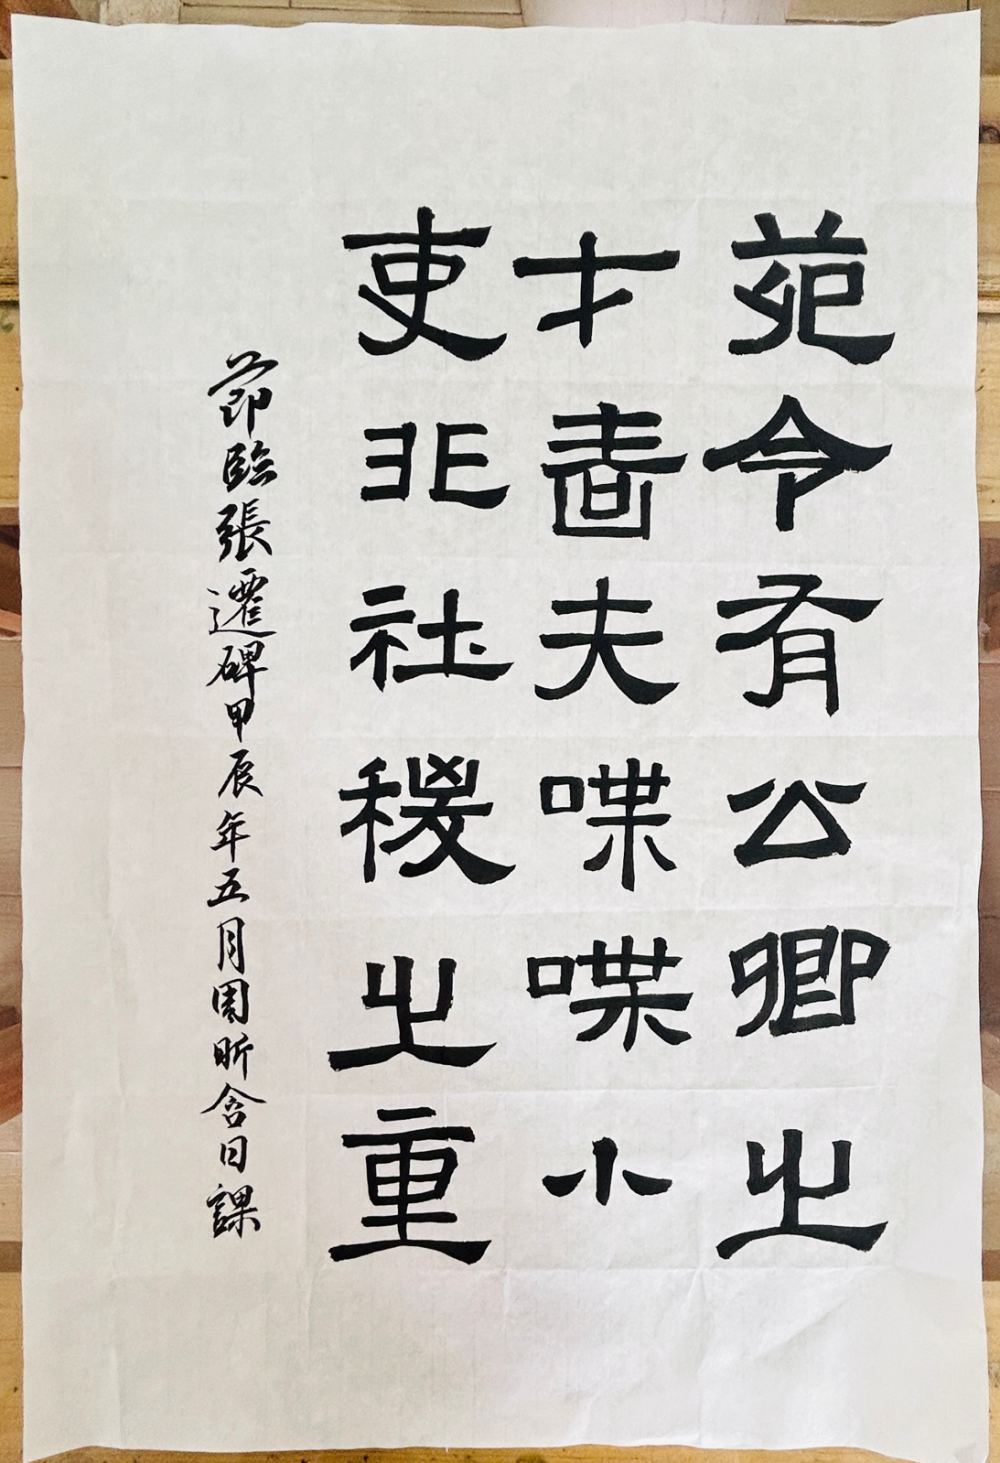 苑令有公卿之
才啬夫喋喋小
吏非社稷之重
節臨張遷碑甲辰年五月周昕含日課